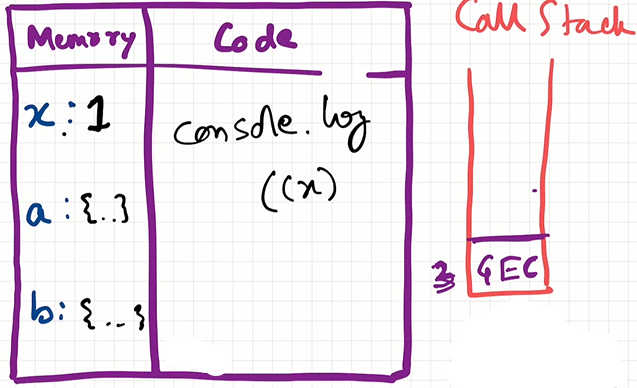 Memory Code
x : 1
console.log
((x)
a : {..}
b : {...}
Call Stack
GEC